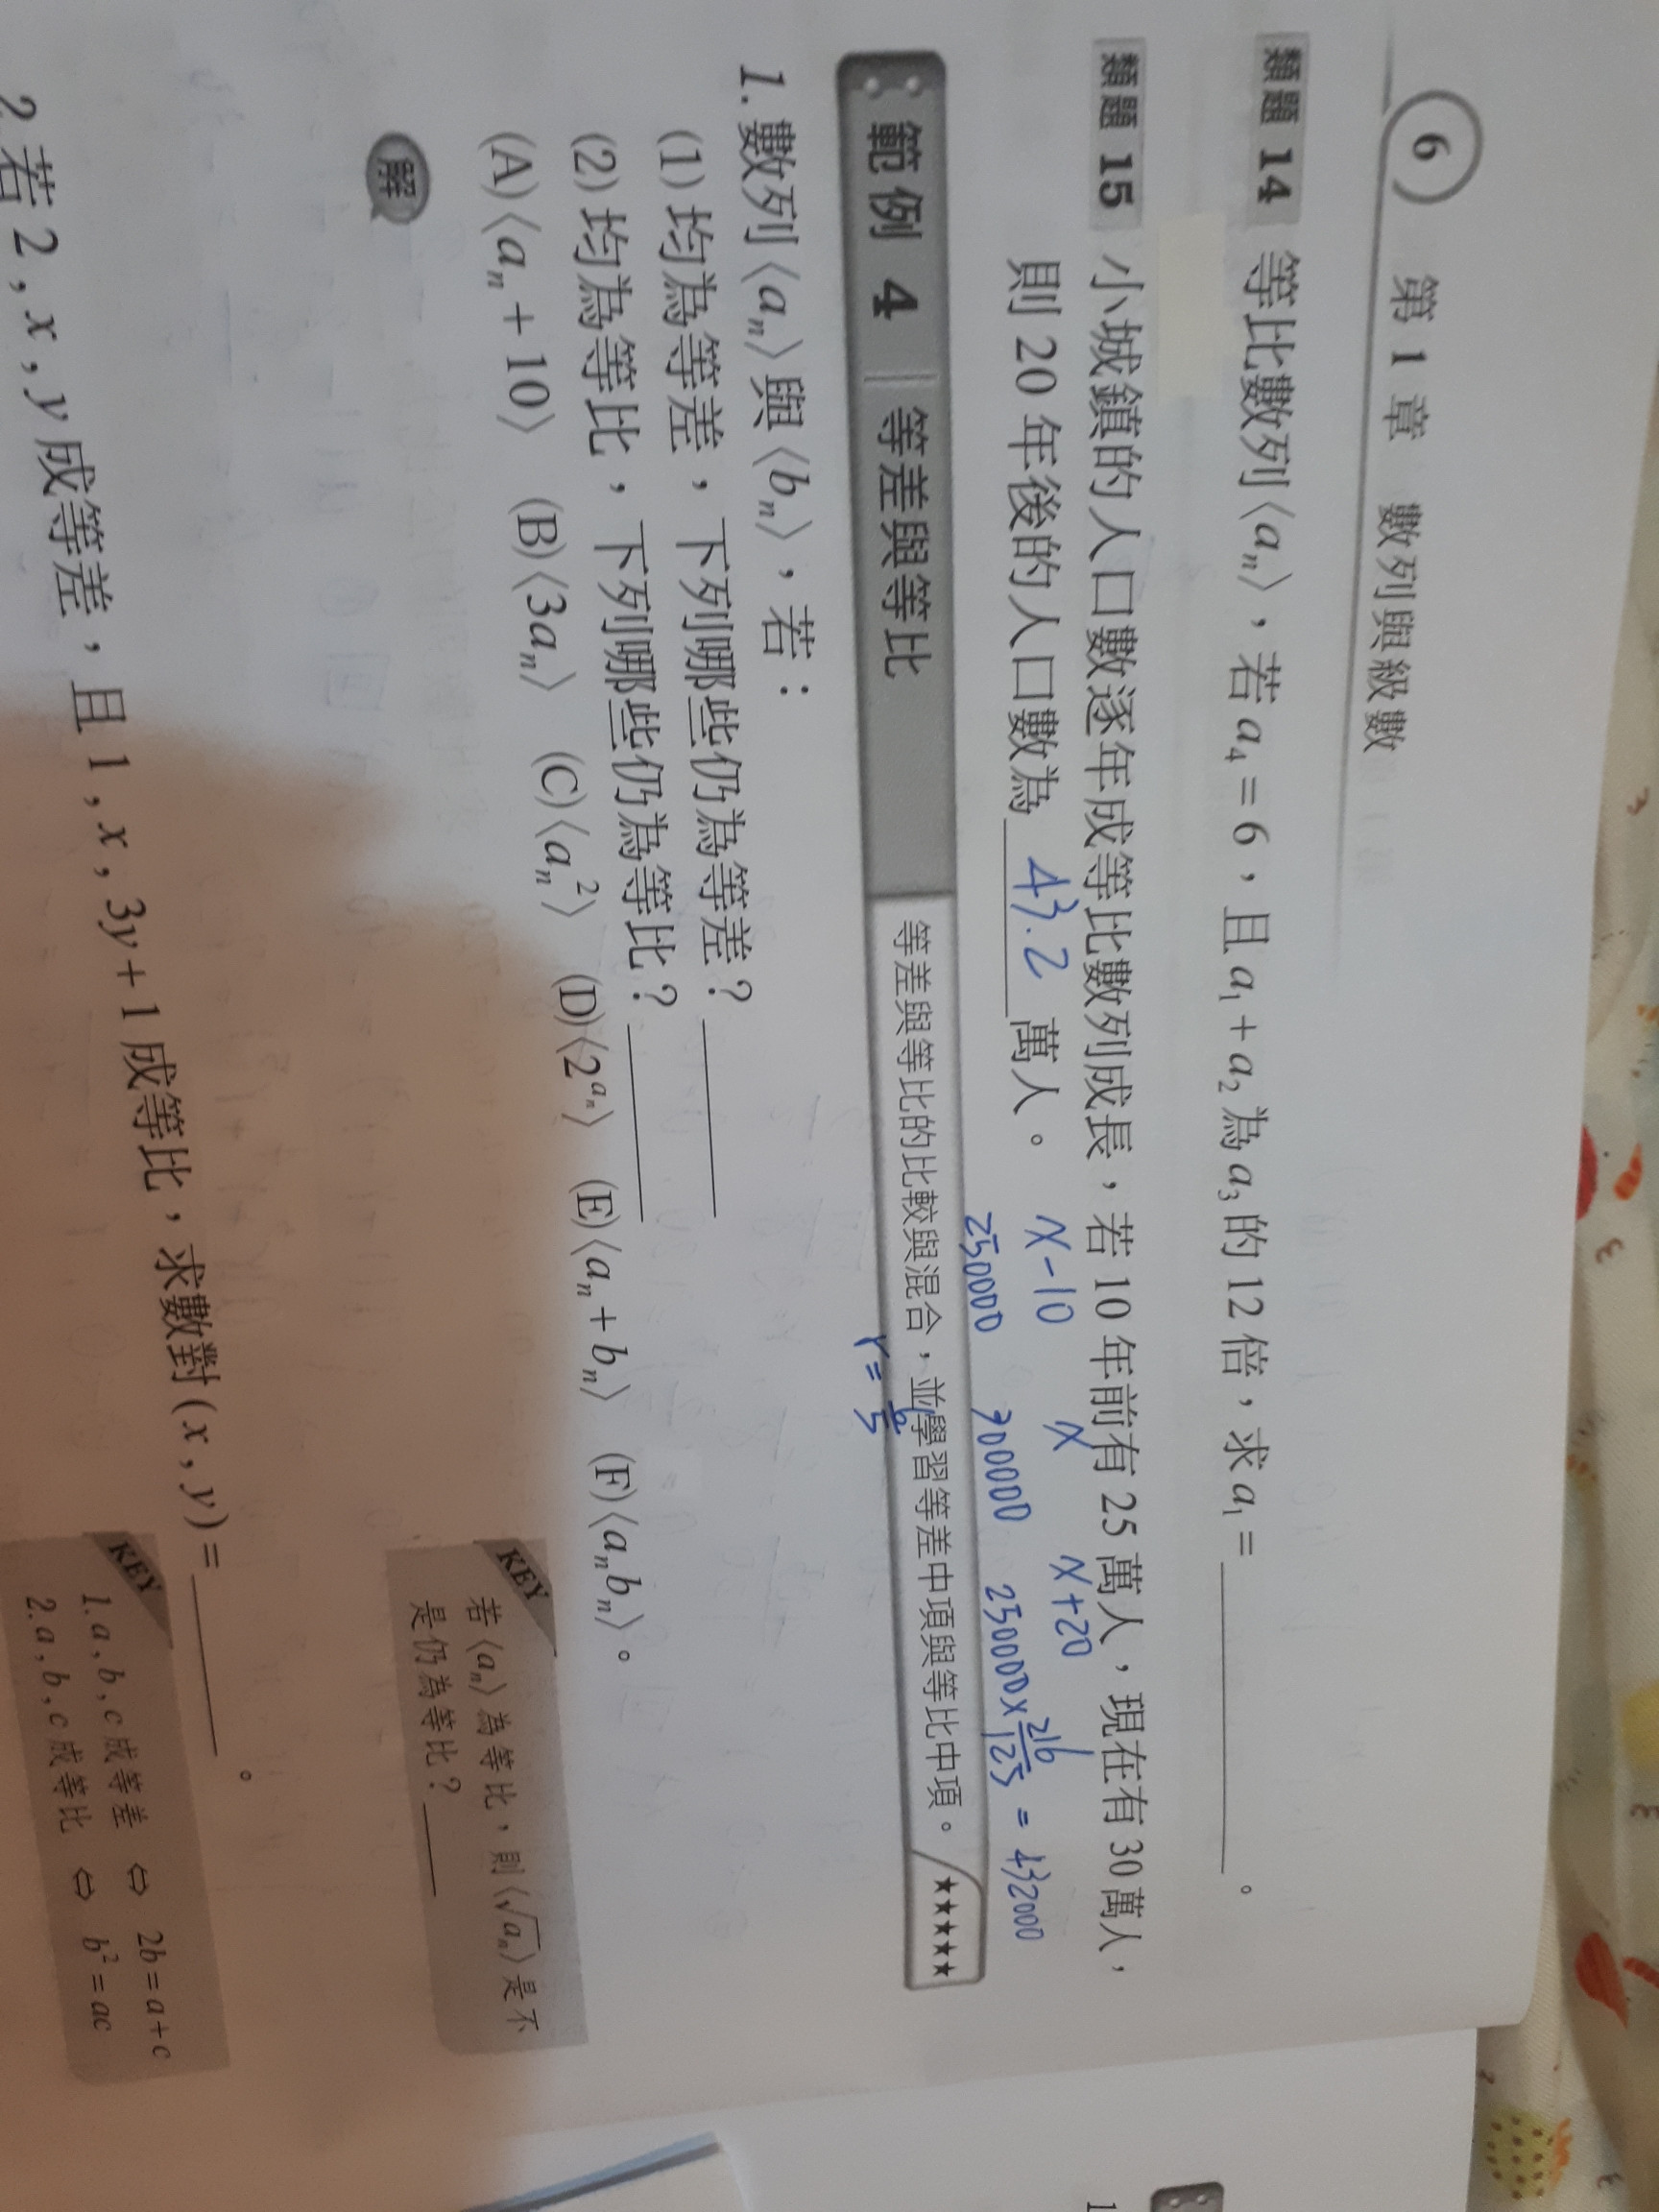 6 第 1 章 數列與級數
類題 14 等比數列⟨aₙ⟩，若 a₄＝6，且 a₁＋a₂ 為 a₃ 的 12 倍，求 a₁＝________。
類題 15 小城鎮的人口數逐年成等比數列成長，若 10 年前有 25 萬人，現在有 30 萬人，
則 20 年後的人口數為 43.2 萬人。
x-10 x x+20
250000 300000 250000×216/125 = 432000
r = 6/5
範例 4 等差與等比 等差與等比的比較與混合，並學習等差中項與等比中項。 ★★★★★
1. 數列⟨aₙ⟩與⟨bₙ⟩，若：
(1) 均為等差，下列哪些仍為等差？________
(2) 均為等比，下列哪些仍為等比？________
(A)⟨aₙ＋10⟩ (B)⟨3aₙ⟩ (C)⟨aₙ²⟩ (D)⟨2^{aₙ}⟩ (E)⟨aₙ＋bₙ⟩ (F)⟨aₙbₙ⟩。
解
KEY
若⟨aₙ⟩為等比，則⟨√aₙ⟩是不
是仍為等比？____
2. 若 2，x，y 成等差，且 1，x，3y＋1 成等比，求數對(x，y)＝________。
KEY
1. a，b，c 成等差 ⇔ 2b＝a＋c
2. a，b，c 成等比 ⇔ b²＝ac